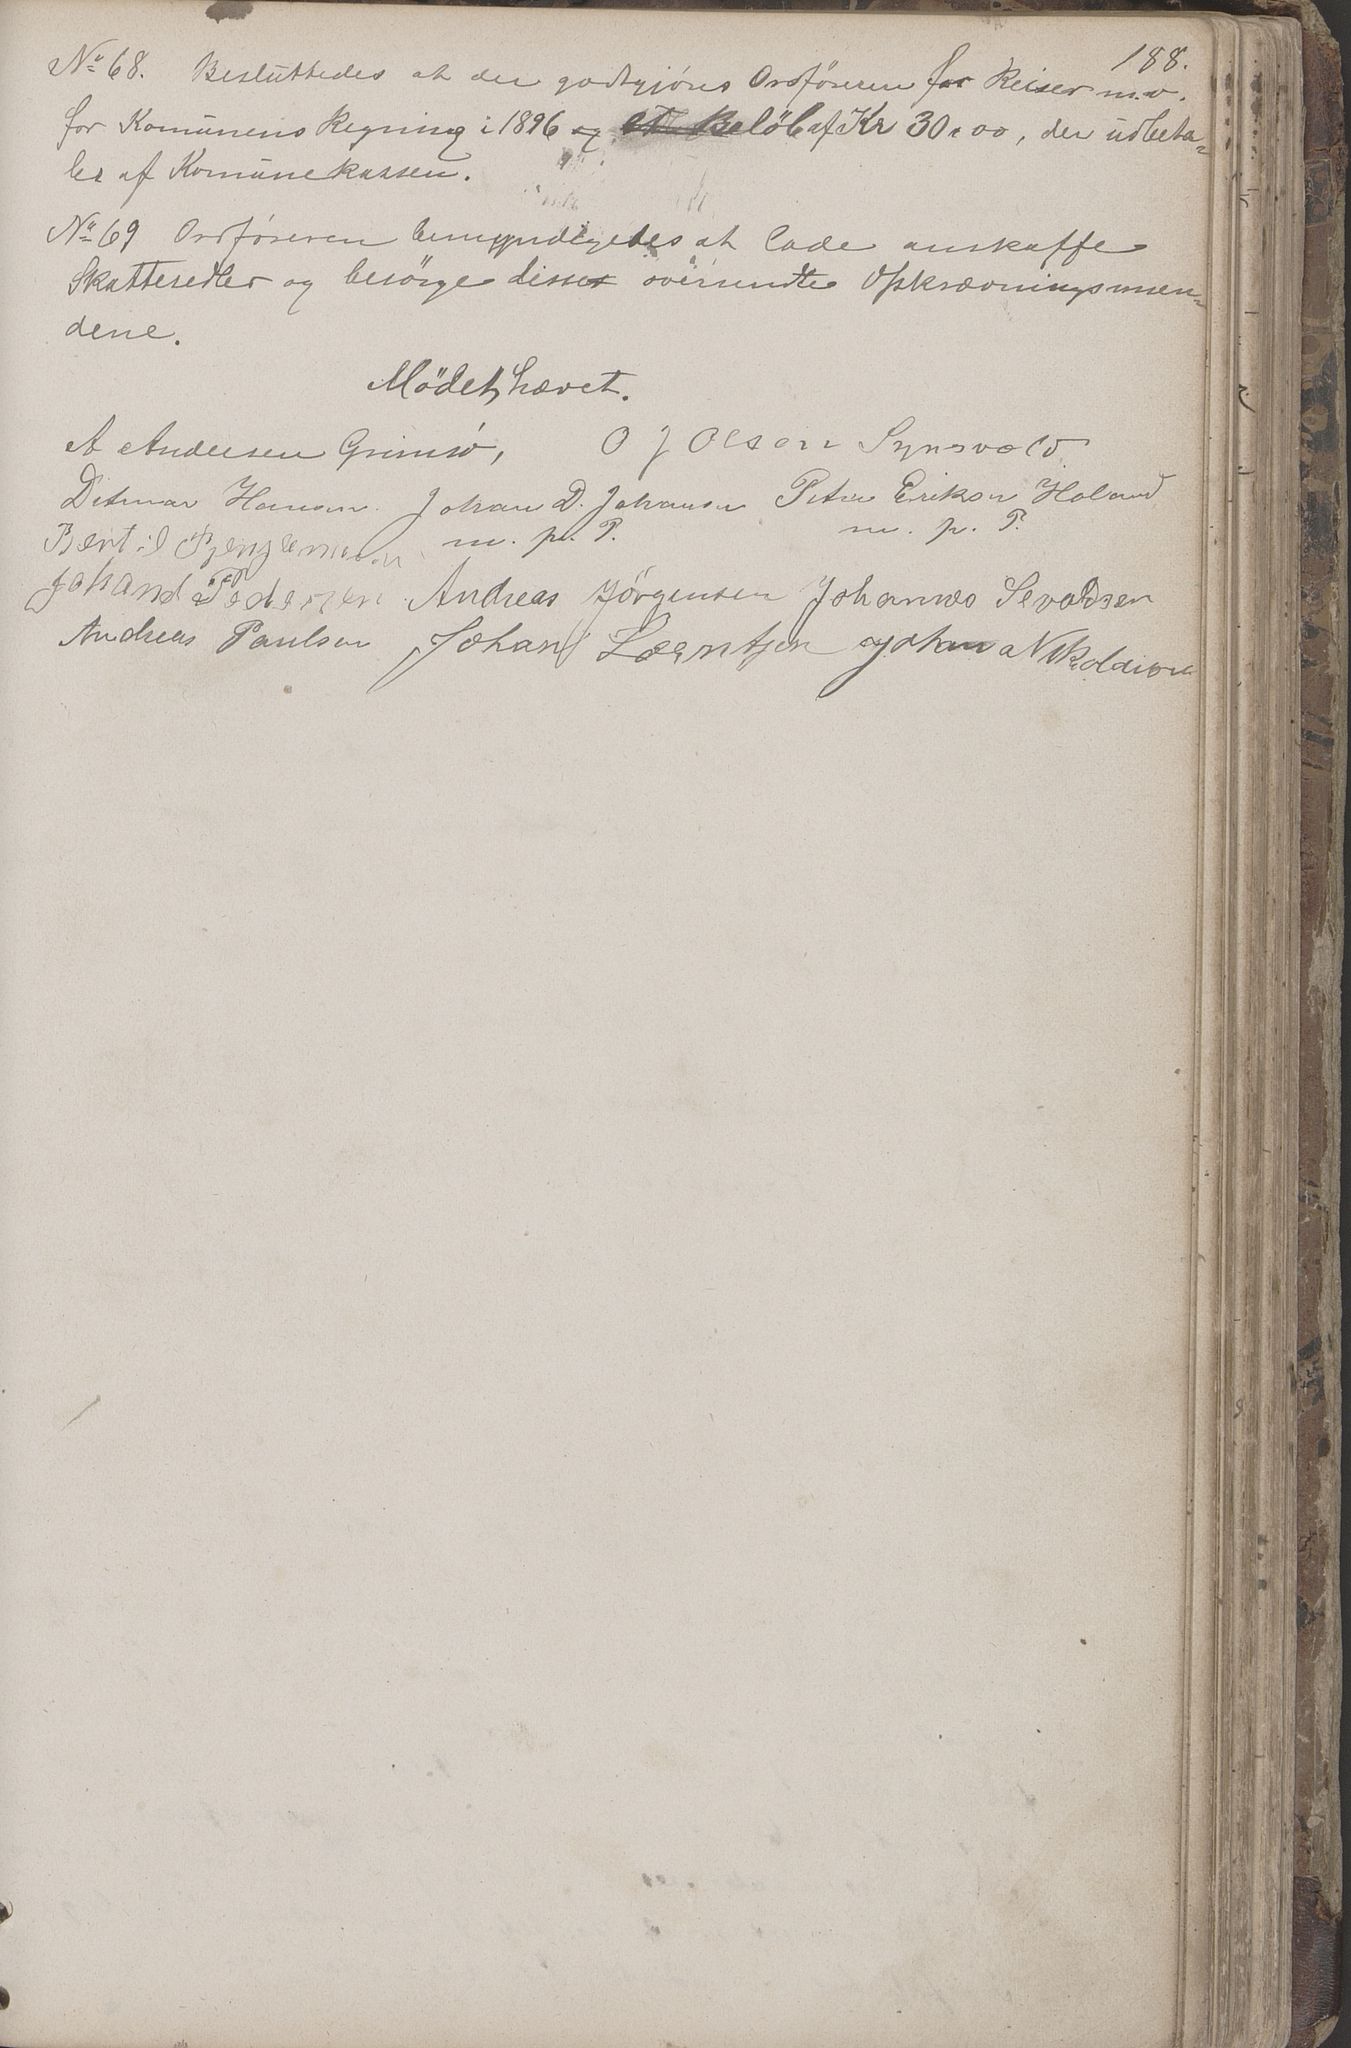 188.
No 68. Besluttedes at der godtgjöres Ordföreren for Reiser m.v.
for Komünens Regning i 1896 et Belöb af Kr 30,00, der üdbeta-
les af Komünekassen.
No 69 Ordföreren bemyndigedes at lade anskaffe
Skattesedler og besörge disse oversendte Opkrævningsmæn-
dene.
Mödet hævet.
A Andersen Grimsö, O J Olsen Synsvold
Ditmar Hansen Johan D. Johansen Peter Erikson Holand
m. p. P. m. p. P.
Bertil
Johan Pedersen Andreas Jörgensen Johannes Sevaldsen
Andreas Paulsen Johan Lorntsen Johan Nikolaisen